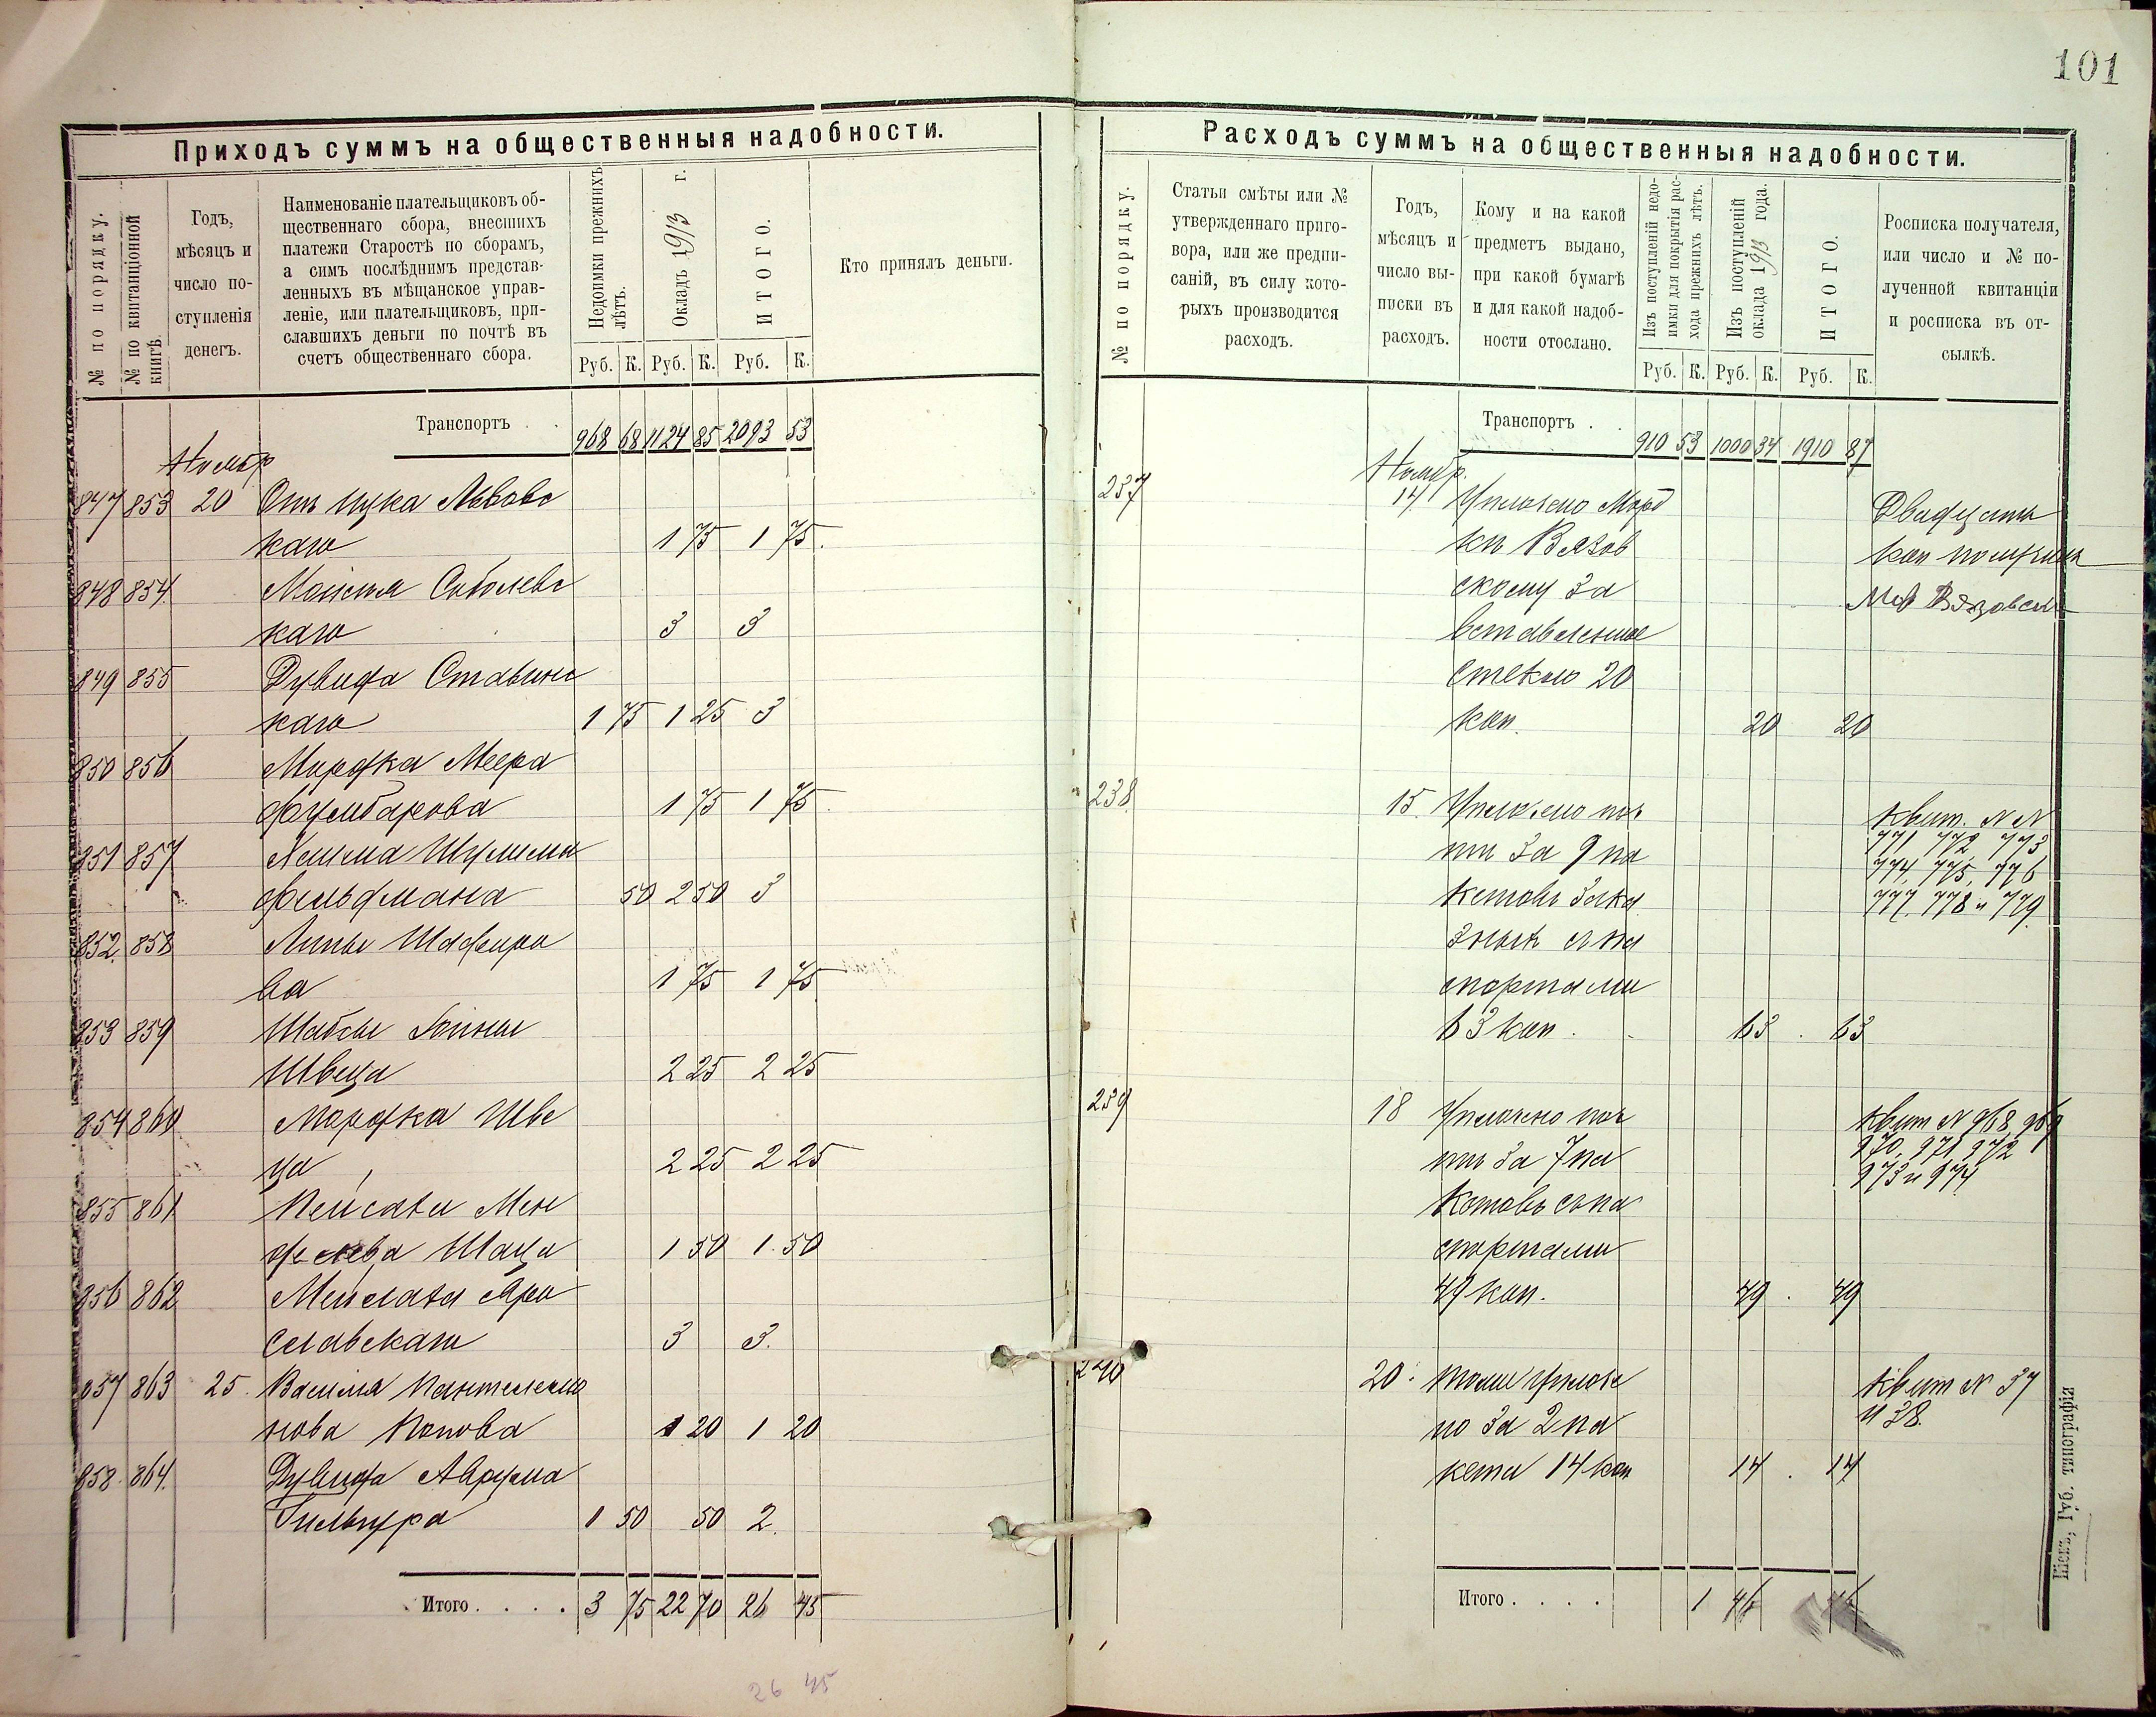 101
Приходъ суммъ на общественныя надобности.
№ по порядку.
№ по квитанціонной книгѣ.
Годъ, мѣсяцъ и число поступленія денегъ.
Наименованіе плательщиковъ об-
щественнаго сбора, внесшихъ
платежи Старостѣ по сборамъ,
а симъ послѣднимъ представ-
ленныхъ въ мѣщанское управ-
леніе, или плательщиковъ, при-
славшихъ деньги по почтѣ въ
счетъ общественнаго сбора.
Недоимки прежнихъ лѣтъ.
Окладъ 1913 г.
ИТОГО.
Кто принялъ деньги.
Руб. К. Руб. К. Руб. К.
Транспортъ . . 968 68 1124 85 2093 53
Ноябр
847 853 20 Отъ Ицка Львовс
каго 1 75 1 75.
848 854. Мойсея Соболевс
каго 3 3
849 855 Дувида Ставинс
каго 1 75 1 25 3
850 856 Мордка Меера
1 75 1 75.
851 857 Шулима
Фельдмана 50 2 50 3
852. 858 Липы Шафиро
ва 1 75 1 75
853 859 Шабсы
Швеца 2 25 2 25
854 860 Мордка Шве
ца 2 25 2 25
855 861 Пейсаха Мен
делева Шаца 1 50 1.50
856 862 Яро
славскаго 3 3.
857 863 25. Василія Пантелеймо
нова Попова 1 20 1 20
858. 864. Дувида Аврума
1 50 50 2.
Итого . . . . 3 75 22 70 26 45
26 45
Расходъ суммъ на общественныя надобности.
№ по порядку.
Статьи смѣты или №
утвержденнаго приго-
вора, или же предпи-
саній, въ силу кото-
рыхъ производится
расходъ.
Годъ,
мѣсяцъ и
число вы-
писки въ
расходъ.
Кому и на какой
предметъ выдано,
при какой бумагѣ
и для какой надоб-
ности отослано.
Изъ поступленій недо-
имки для покрытія рас-
хода прежнихъ лѣтъ.
Изъ поступленій
оклада 1913 года.
ИТОГО.
Росписка получателя,
или число и № по-
лученной квитанціи
и росписка въ от-
сылкѣ.
Руб. К. Руб. К. Руб. К.
Транспортъ . . 910 53 1000 34 1910 87
Ноябр.
237 14 Уплочено Морд
ки Вязов
скому за
вставленное
стекло 20
коп. 20 20
Двадцать
коп получилъ
Вязовскі
238. 15. Уплочено поч
ти за 9 па
кетовъ зака
зныхъ съ па
спортами
63 коп. 63 . 63
Квит. N N
771 772 773
774, 775, 776
777. 778 и 779.
239 18 Уплочено поч
ти за 7 па
кетовъ съ па
спортами
49 коп. 49 . 49
Квит N 968 969
970, 971 972
973 и 974
240 20. Почти уплоче
но за 2 па
кета 14 коп 14 . 14
Квит N 37
и 38.
Итого . . . . 1 46
Губ. типографія